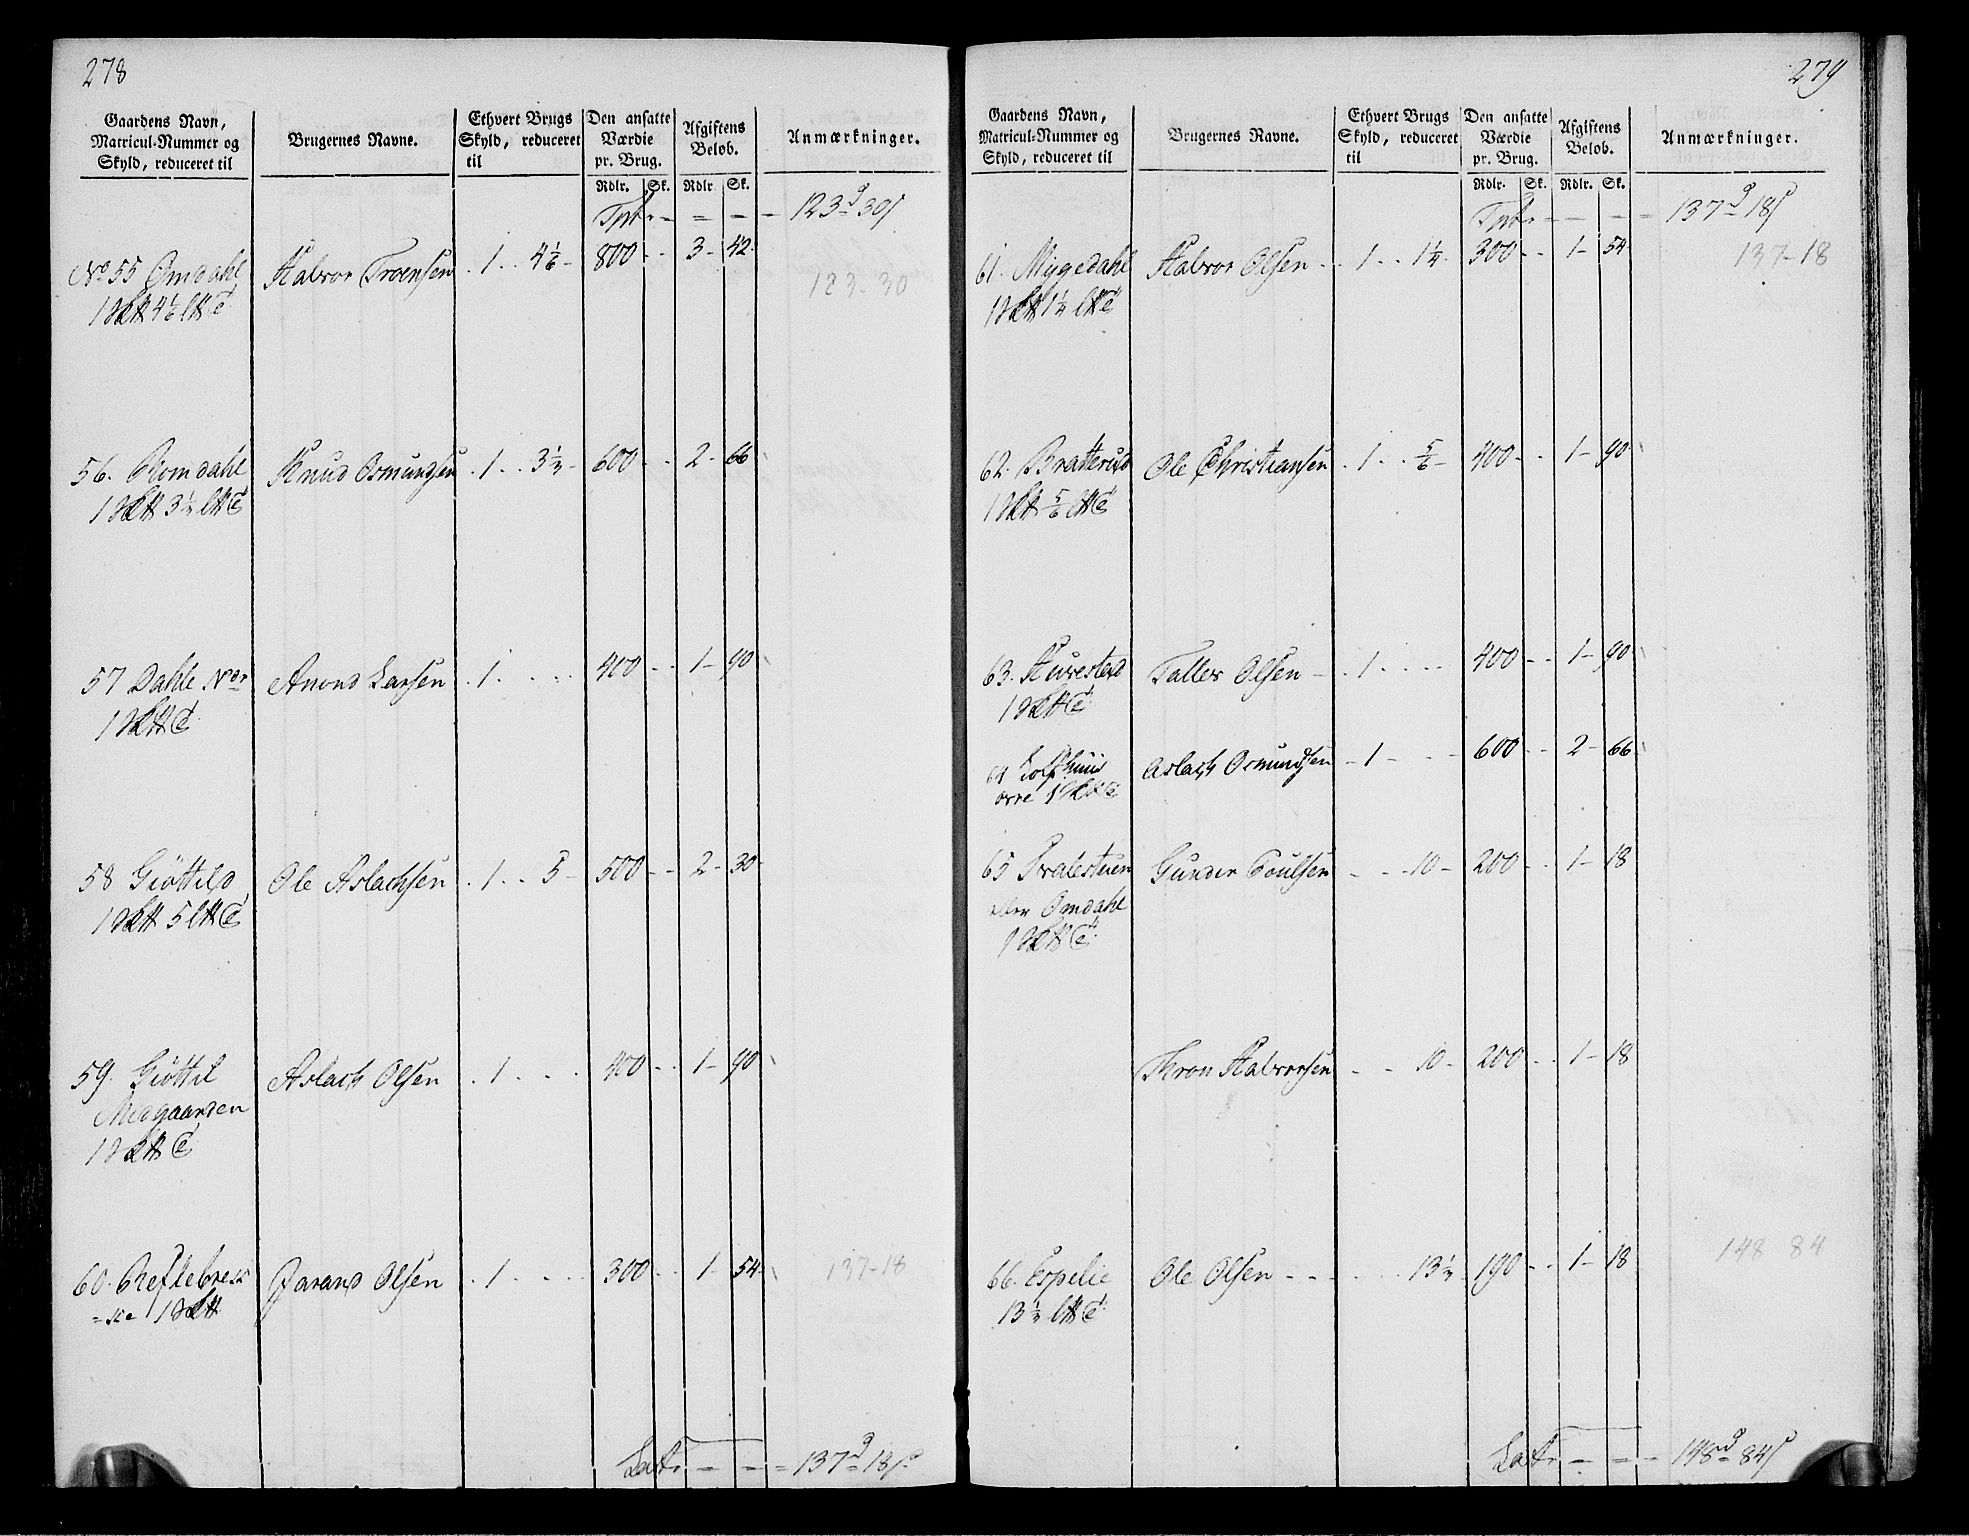 278
Gaardens Navn,
Matricul-Nummer og
Skyld, reduceret til
Brugernes Navne.
Ethvert Brugs
Skyld, reduceret
til
Den ansatte
Værdie
pr. Brug.
Afgiftens
Beløb.
Anmærkninger.
Rdlr. Sk. Rdlr. Sk.
Tpt. - = - = 123 d 30 s
No 55 Omdahl Halvor Troensen . 1 . . 4 1/6 - 800 . . 3 - 42
1 4 1/6
123-30
56. Romdahl Knud Osmundsen . 1 . . 3 1/2 - 600 . . 2 - 66
1 3 1/2
57 Dahle Ndr Anond Larsen . 1 . . . . 400 . . 1 - 90
1
58 Giøttild Ole Aslachsen . 1 . . 5 - 500 - - 2 - 30
1 5
59. Giøttil Aslach Olsen . 1 . . . 400 - . 1 - 90
Midgaarden
1
60. Reflebres Jarand Olsen . 1 . . . . 300 . . 1 - 54
1
137-18
Lat. - - = 137 d 18 s
279
Gaardens Navn,
Matricul-Nummer og
Skyld, reduceret til
Brugernes Navne.
Ethvert Brugs
Skyld, reduceret
til
Den ansatte
Værdie
pr. Brug.
Afgiftens
Beløb.
Anmærkninger.
Rdlr. Sk. Rdlr. Sk.
Tpt. - - = = 137 d 18 s
61. Mygedahl Halvor Olsen . . 1 . . 1 1/4 . 300 . . 1 - 54
1 1 1/4
137-18
62. Bratterud Ole Christiansen . 1 . . 5/6 - 400 - . 1 - 90
1 5/6
63. Taller Olsen - . 1 . . . . 400 - - 1 - 90
1
64 Aslach Osmundsen - 1 - . . . 600 - - 2 - 66
øvre 1
65 Gunder Poulsen - - - 10 - 200 - - 1 - 18
eller Omdahl
1
Thron Halvorsen - - 10 - 200 - . 1 - 18
148 84
66. Espelie Ole Olsen - - . . . . 13 1/2 . 190 - - 1 - 18
13 1/2
Lat. - = = 148 d 84 s